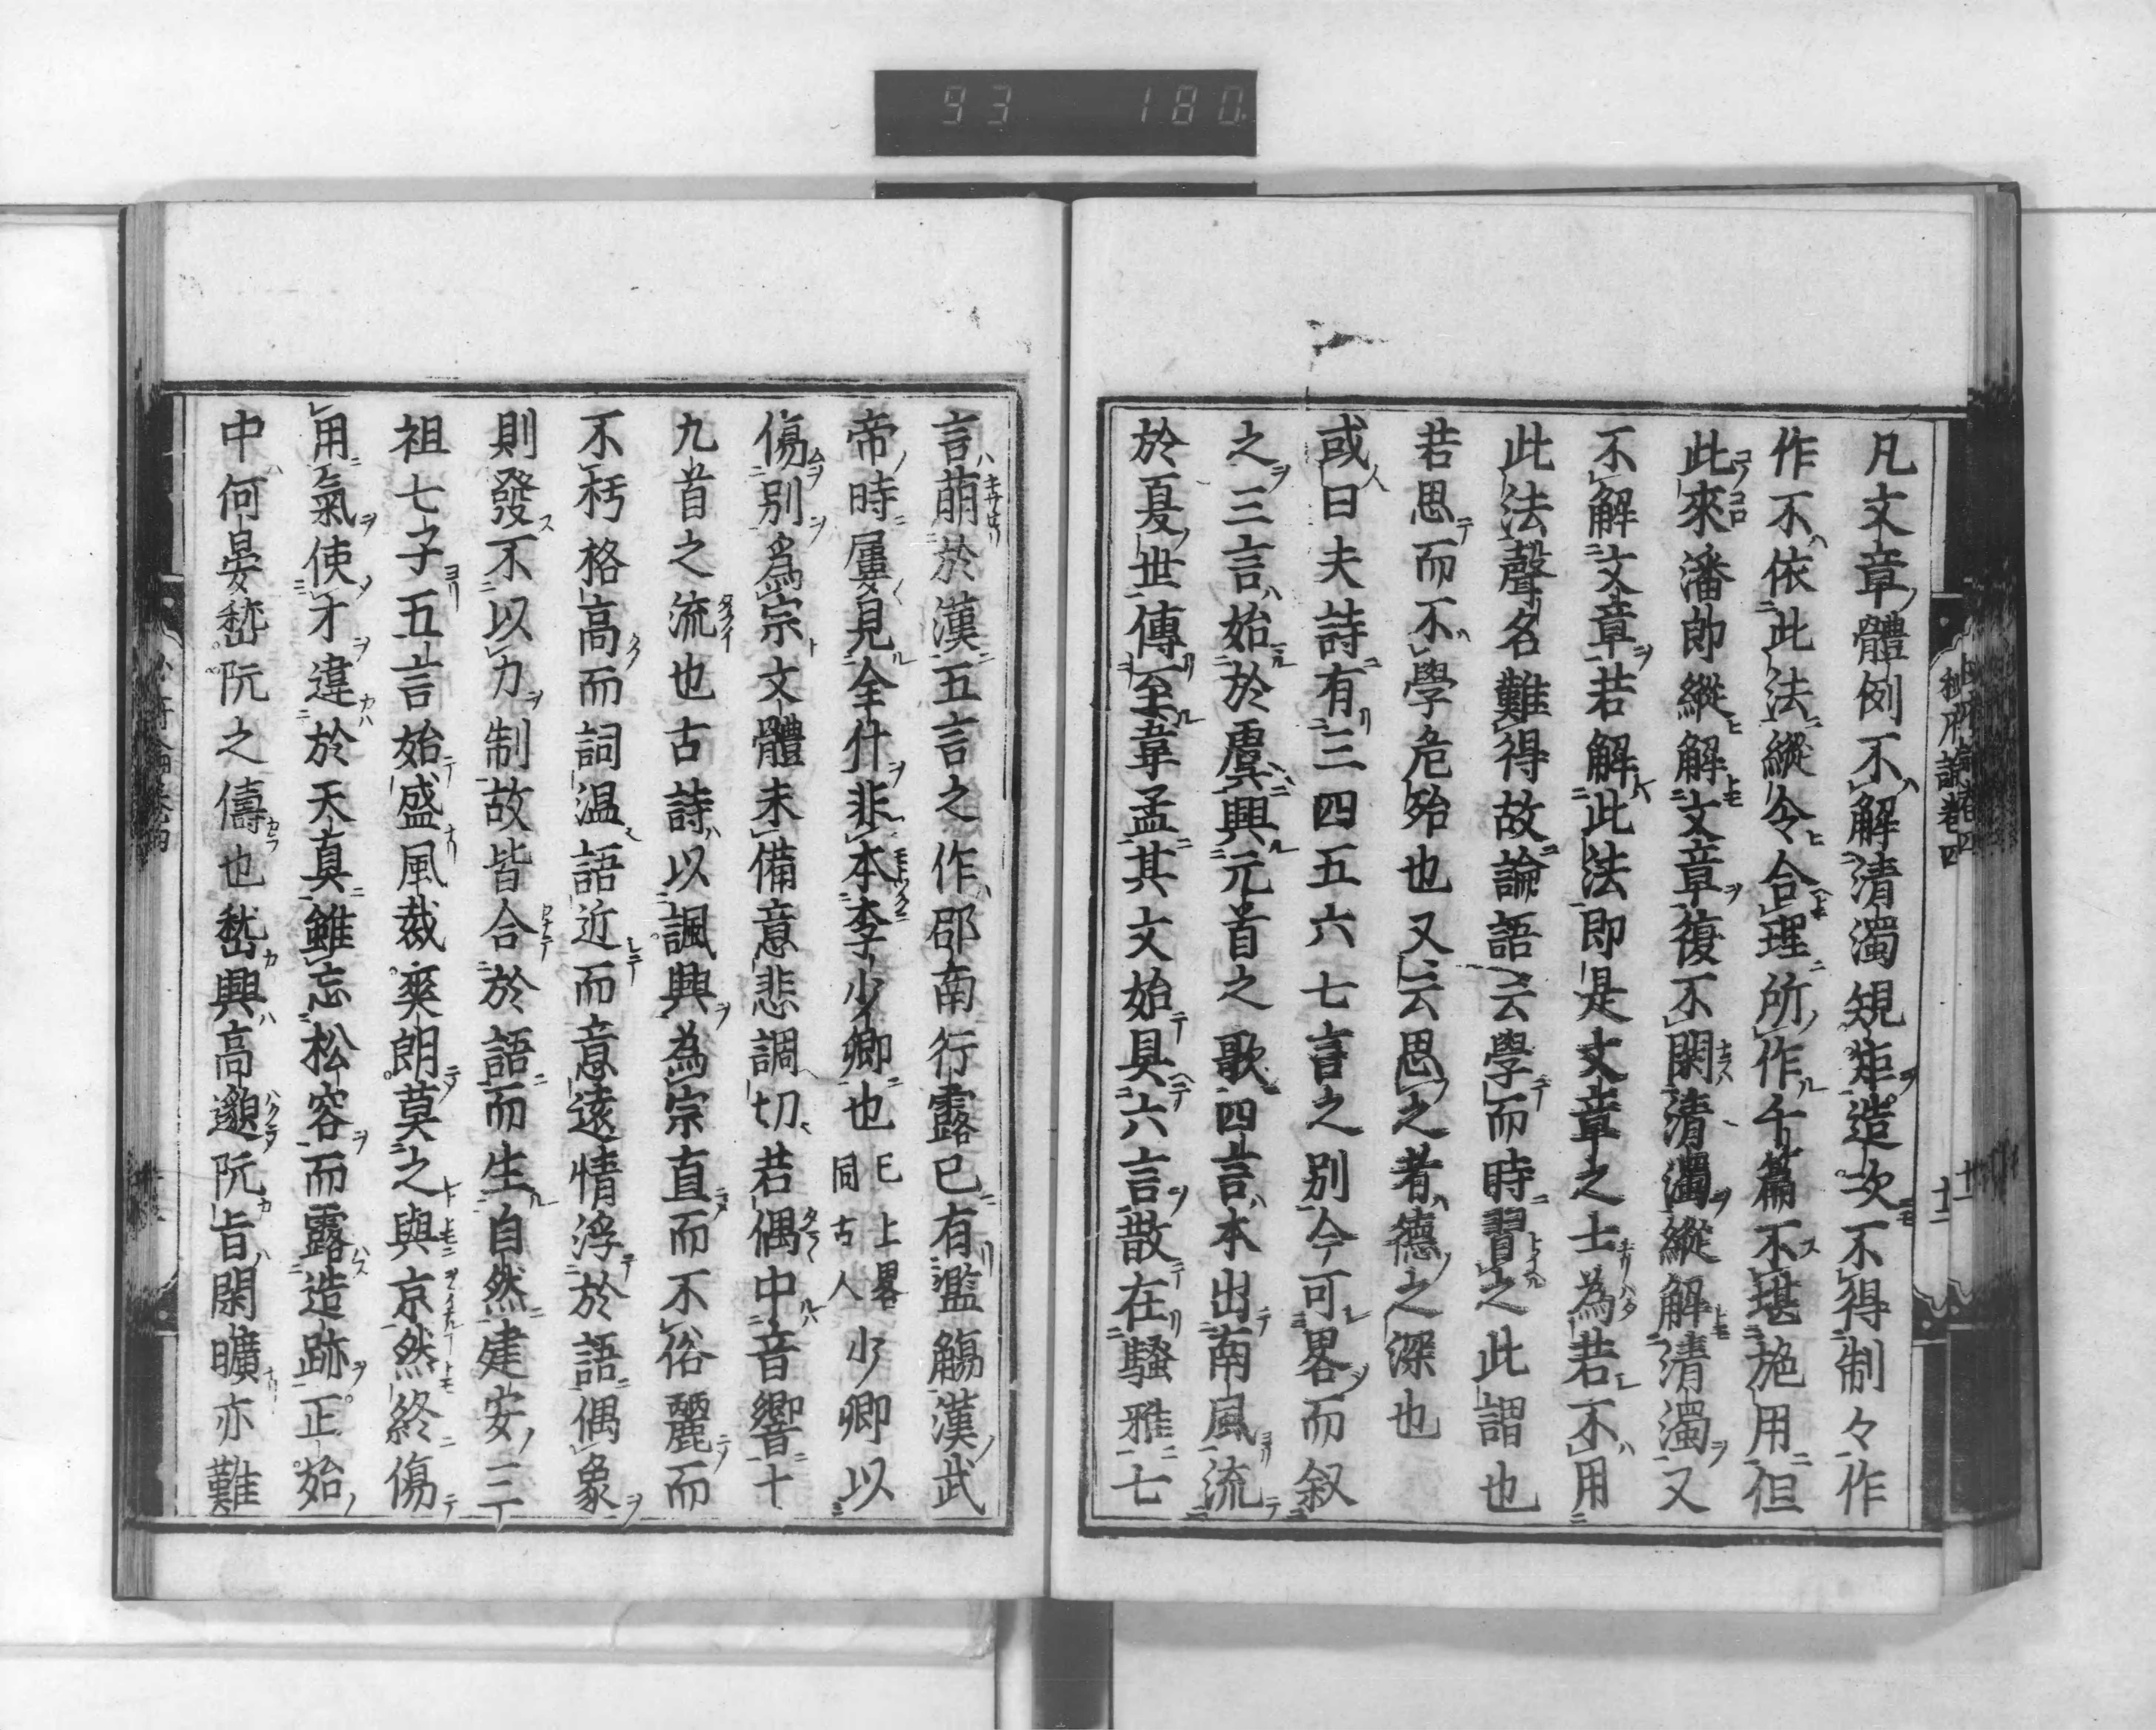 93 180
凡文章體例不解清濁規矩造次不得制々作
作不依此法縱令合理所作千篇不堪施用但
此來潘郎縱解文章復不閑清濁縱解清濁又
不解文章若解此法即是文章之士為若不用
此法聲名難得故論語云學而時習之此謂也
若思而不學危殆也又云思之者德之深也
或曰夫詩有三四五六七言之別今可畧而叙
之三言始於虞興元首之歌四言本出南風流
於夏世傳至韋孟其文始具六言散在騷雅七
言萠於漢五言之作郘南行露已有濫觴漢武
帝時屢見全什非本李少卿也已上畧同古人少卿以
傷別爲宗文體未備意悲調切若偶中音響十
九首之流也古詩以諷興為宗直而不俗麗而
不朽格高而詞温語近而意遠情浮於語偶象
則發不以力制故皆合於語而生自然建安三
祖七子五言始盛風裁爽朗莫之與京然終傷
用氣使才違於天真雖忘松容而露造跡正始
中何晏嵆阮之儔也嵆興高邈阮旨閑曠亦難